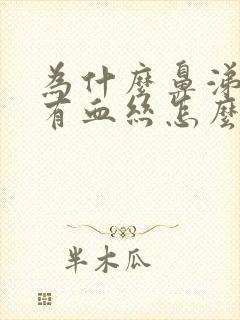 為什麼鼻涕
有血絲怎麼
半木瓜